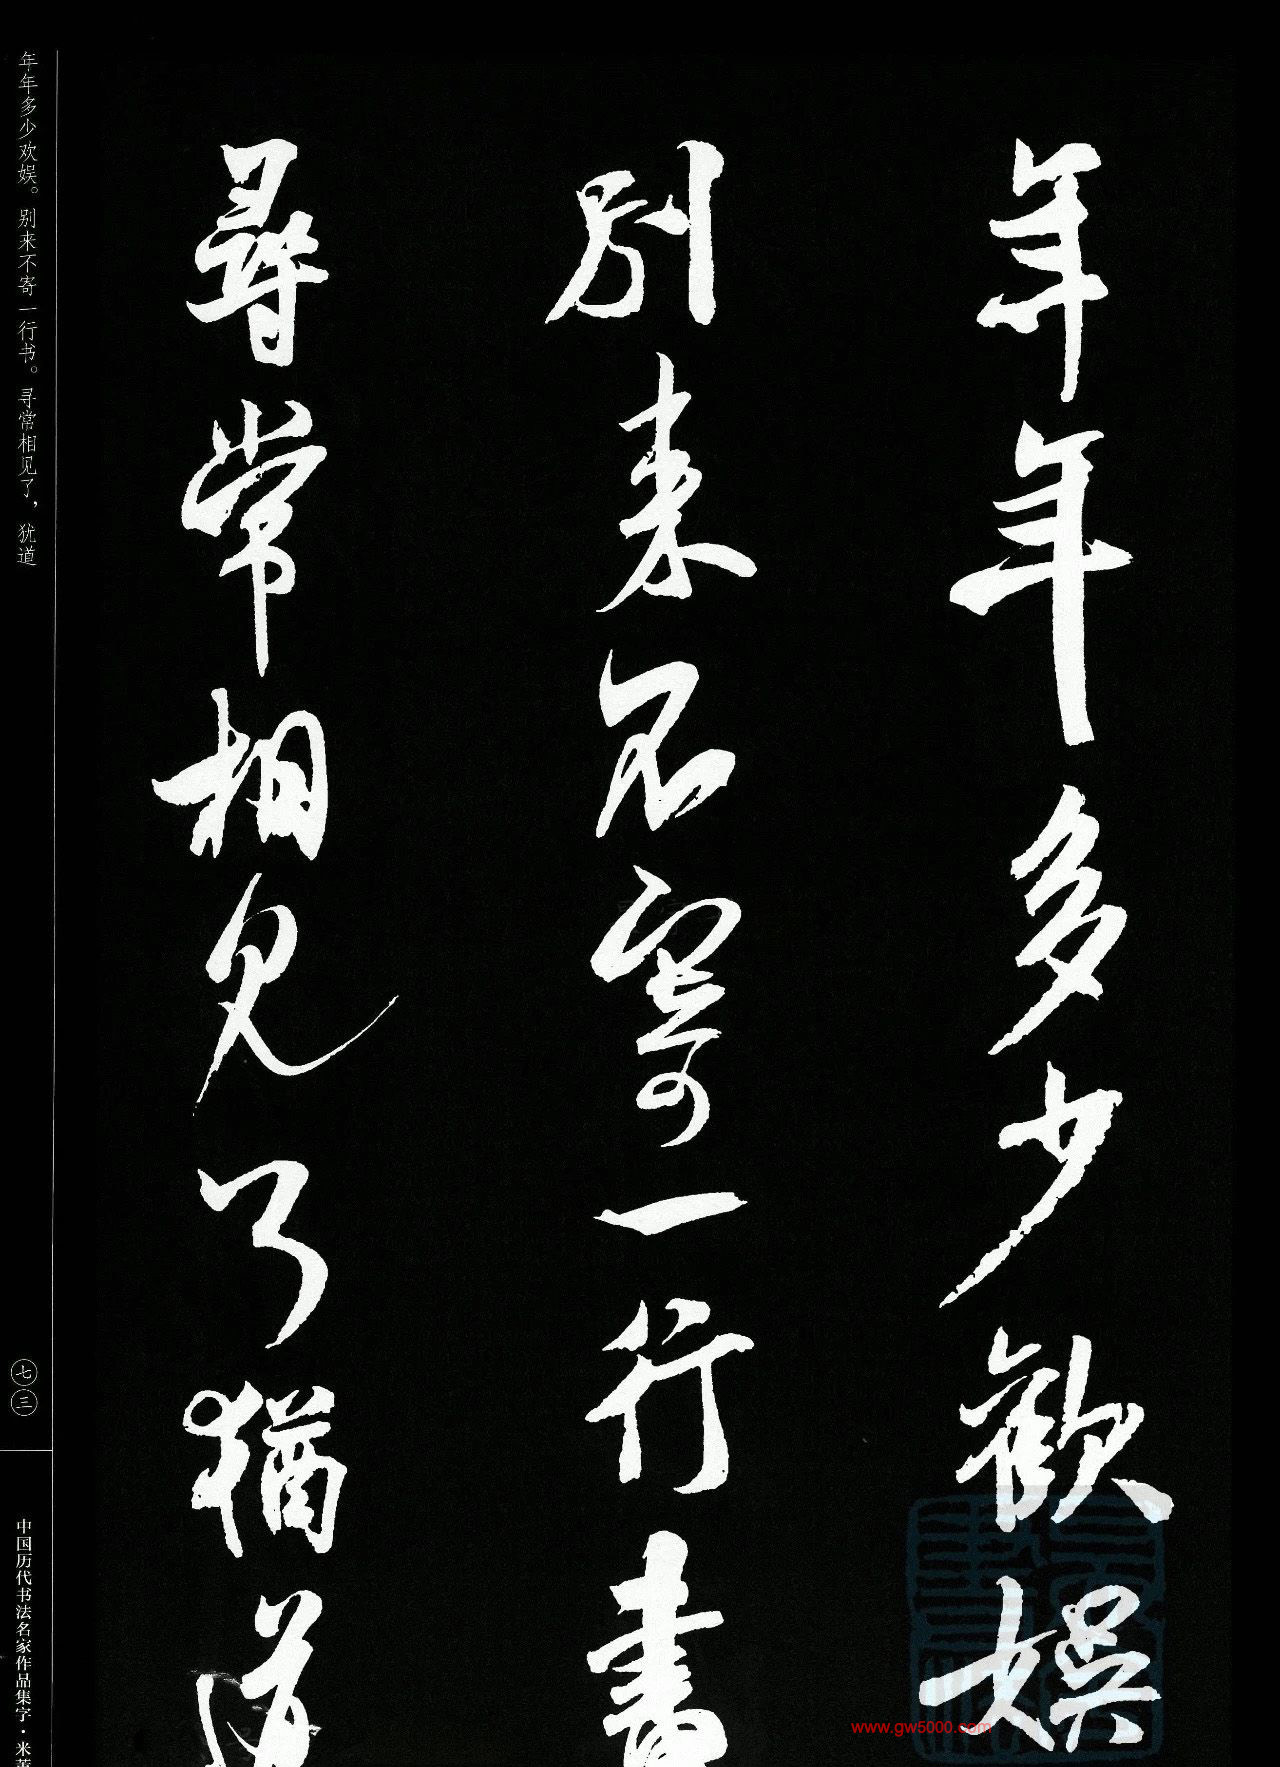 年年多少歡娱
別来不寄一行書
尋常相見了猶道
年年多少欢娱。别来不寄一行书。寻常相见了，犹道
七三
中国历代书法名家作品集字·米芾
www.gw5000.com